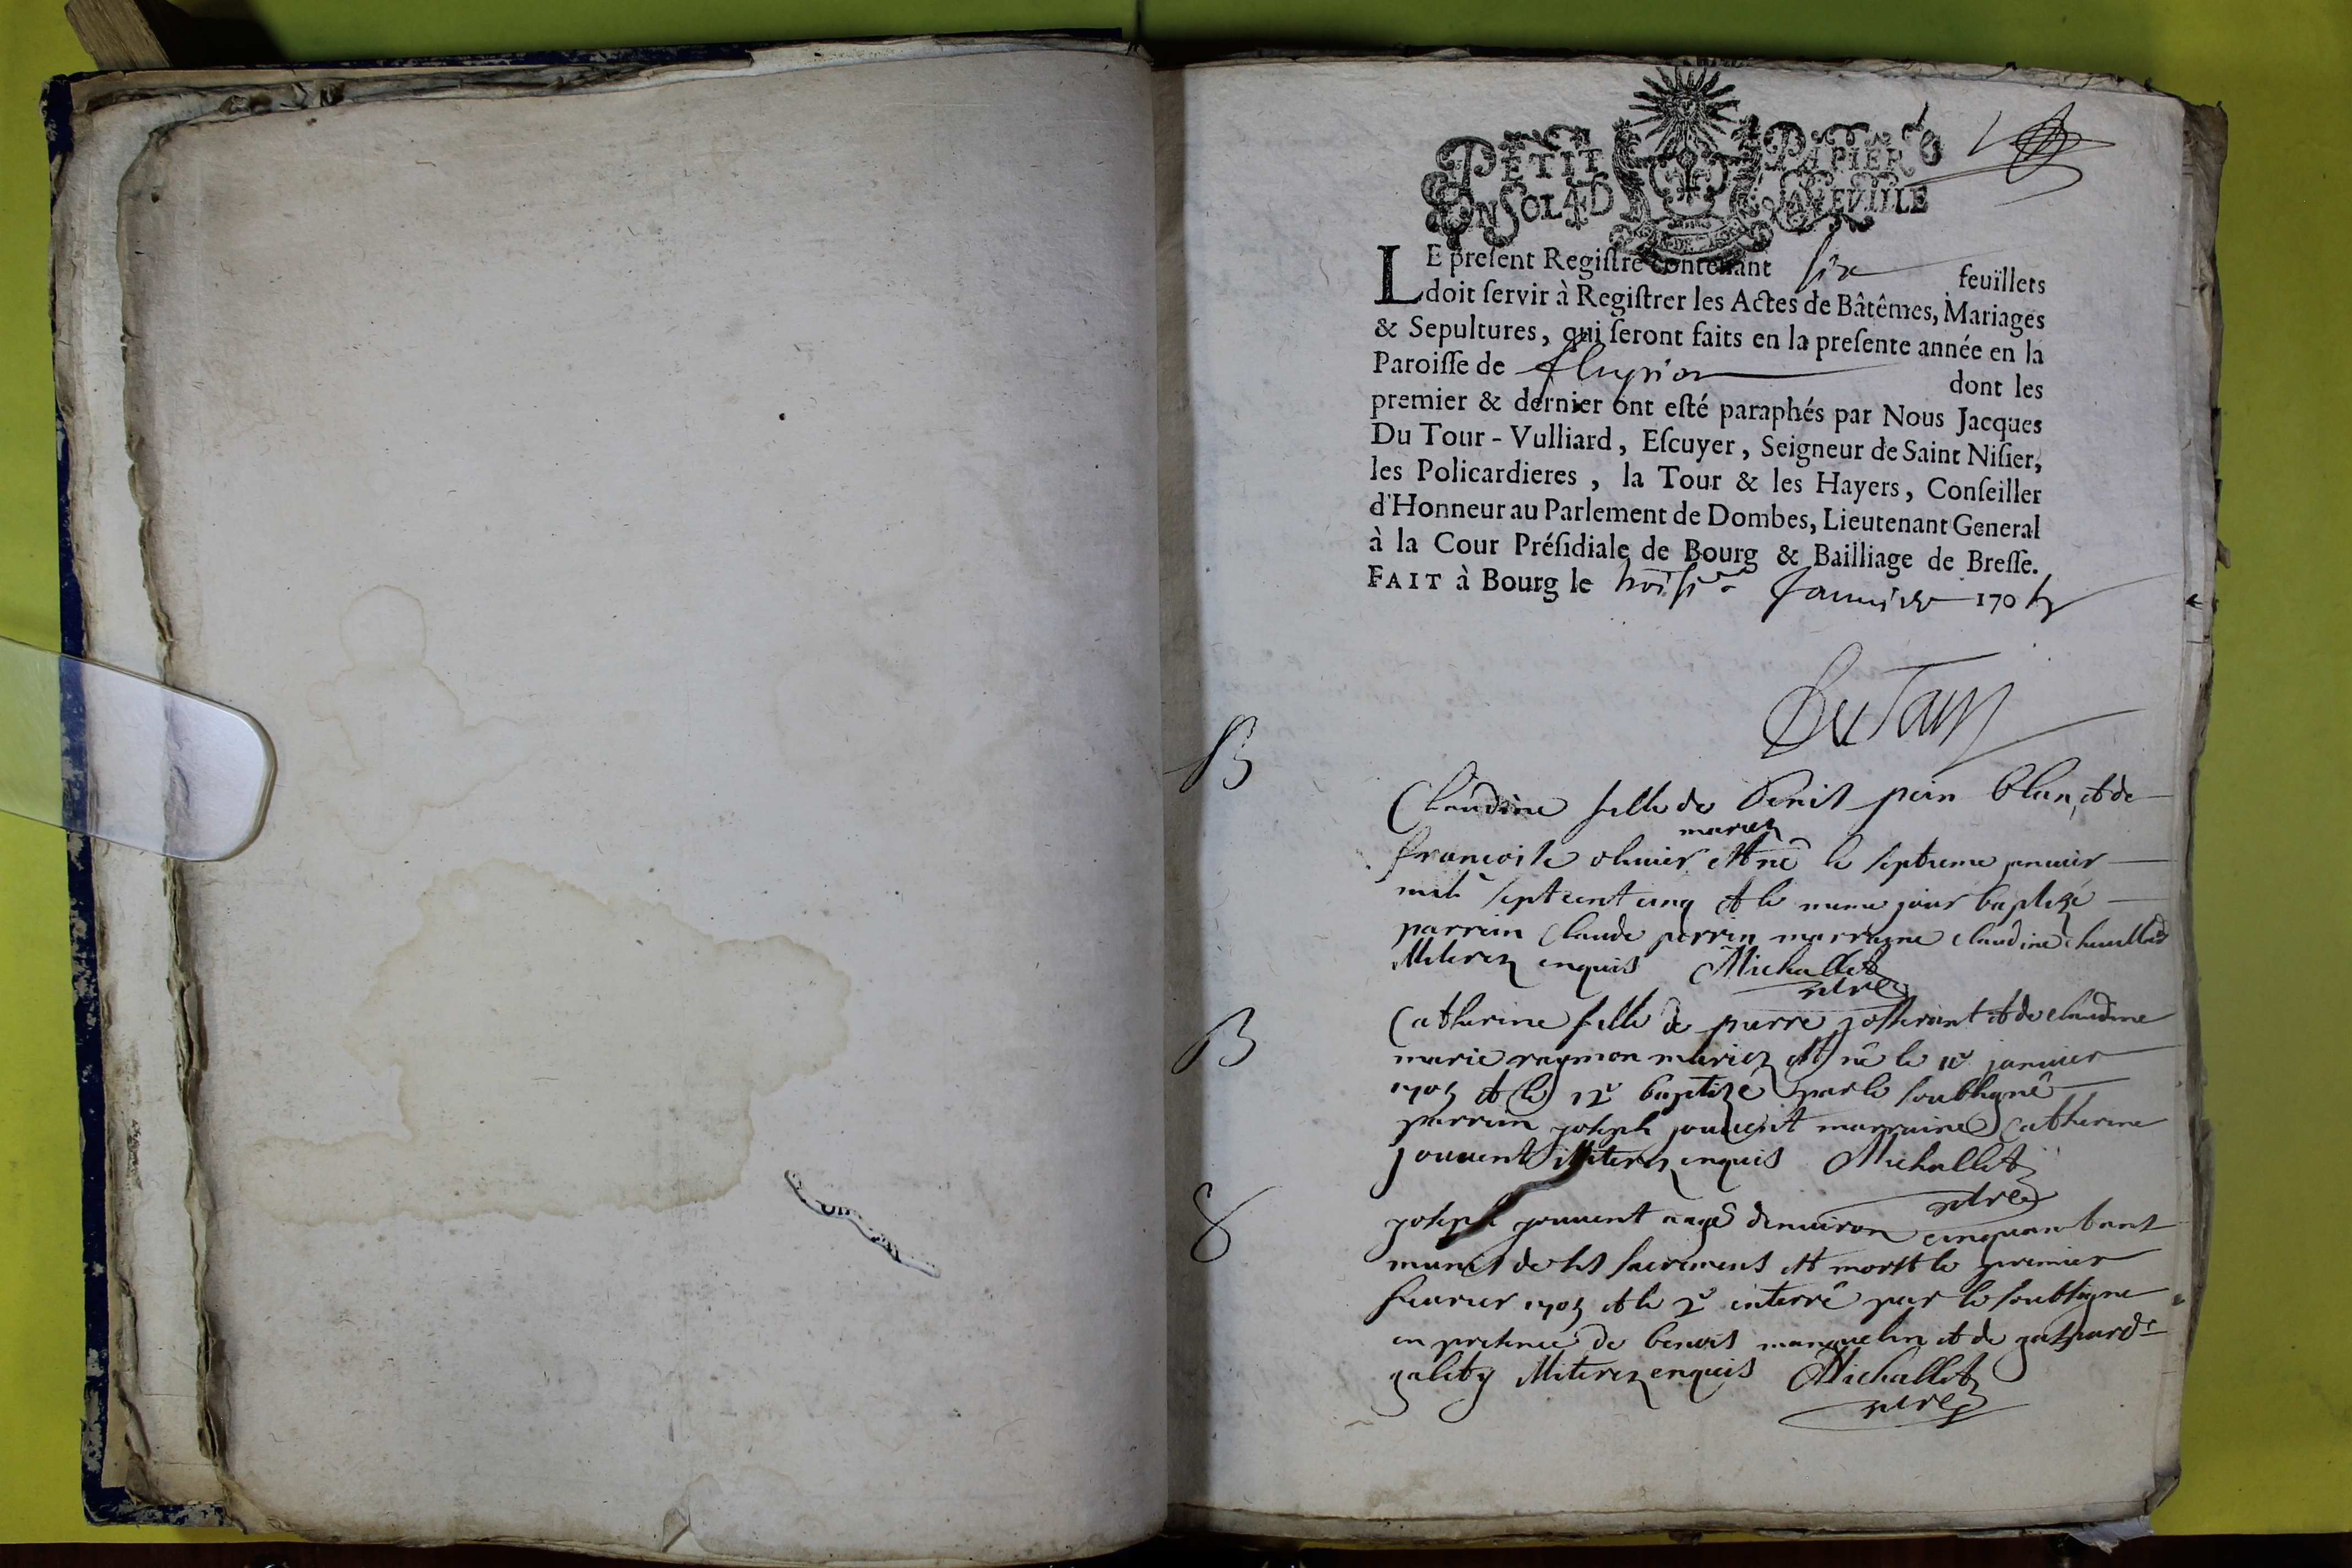 PETIT PAPIER
EN SOL 4 D LA FEVILLE
LE preſent Regiſtre contenant six feuïllets
doit ſervir à Regiſtrer les Actes de Bâtêmes, Mariages
& Sepultures, qui ſeront faits en la preſente année en la
Paroiſſe de fleyria dont les
premier & dernier ont eſté paraphés par Nous Jacques
Du Tour - Vulliard, Eſcuyer, Seigneur de Saint Niſier,
les Policardieres, la Tour & les Hayers, Conſeiller
d'Honneur au Parlement de Dombes, Lieutenant General
à la Cour Préſidiale de Bourg & Bailliage de Breſſe.
FAIT à Bourg le troisie Januier 1705
DuTour
B
Claudine fille de Denis pein blan, et de
mariez
francoise oliuier est né le septieme januier
mil septcent cinq et le meme jour baptizé
parrein Claude perrin marraine claudine
illiterez enquis Michallet
ptre
B
Catherine fille de pierre josserant et de claudine
marie raymon mariez est né le 11e januier
1705 et le 12e baptizé par le soubsigné
parrein joseph jouuent marraine Catherine
jouuent illiterez enquis Michallet
ptre
S
joseph jouuent aagé denuiron cinquantans
munis de ses sacremens est mort le premier
feurier 1705 et le 2e enterré par le soubsigne
en presence de benois manguelin et de gaspard
galety illiterez enquis Michallet
ptre